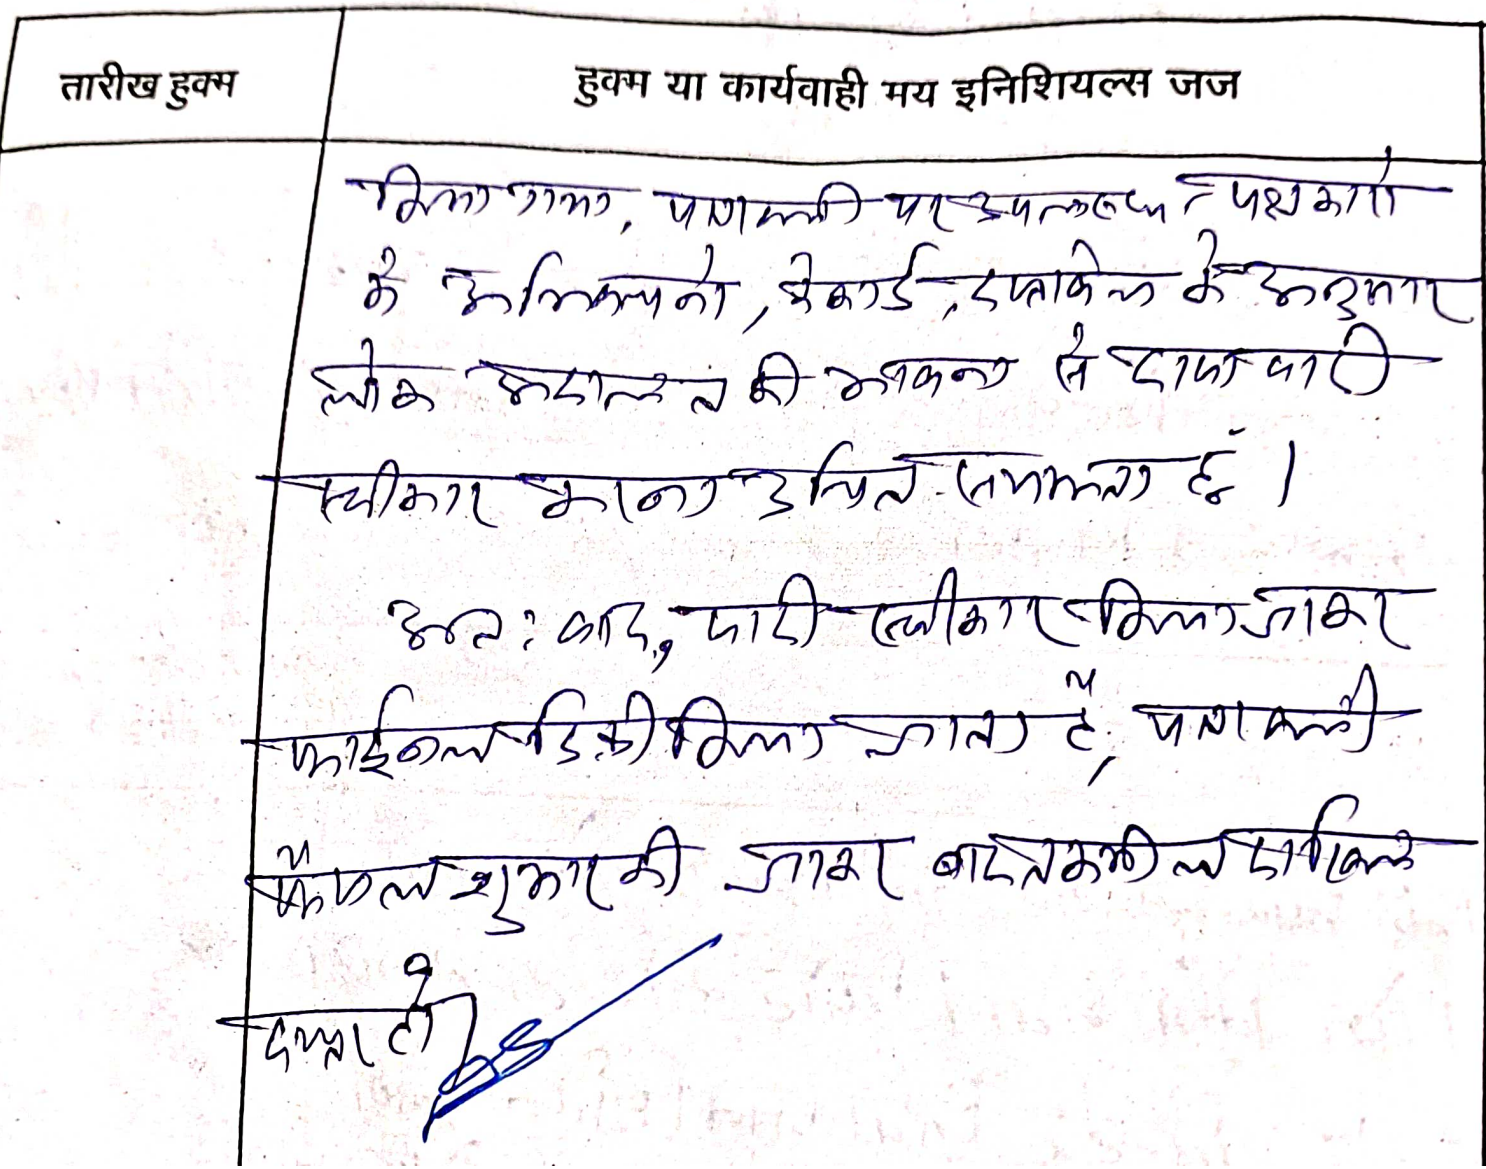 तारीख हुक्म
हुक्म या कार्यवाही मय इनिशियल्स जज
किया गया, पत्रावली पर उपलब्ध पक्षकारो
के अभिवचनो, रेकार्ड, दस्तावेज के अनुसार
लोक अदालत की भावना से दावा वादी
स्वीकार करना उचित समझता हूँ ।
अतः वाद, वादी स्वीकार किया जाकर
फाईनल डिक्री किया जाता है, पत्रावली
फैसल शुमार की जाकर बाद तकमील दाखिल
दफ्तर हो